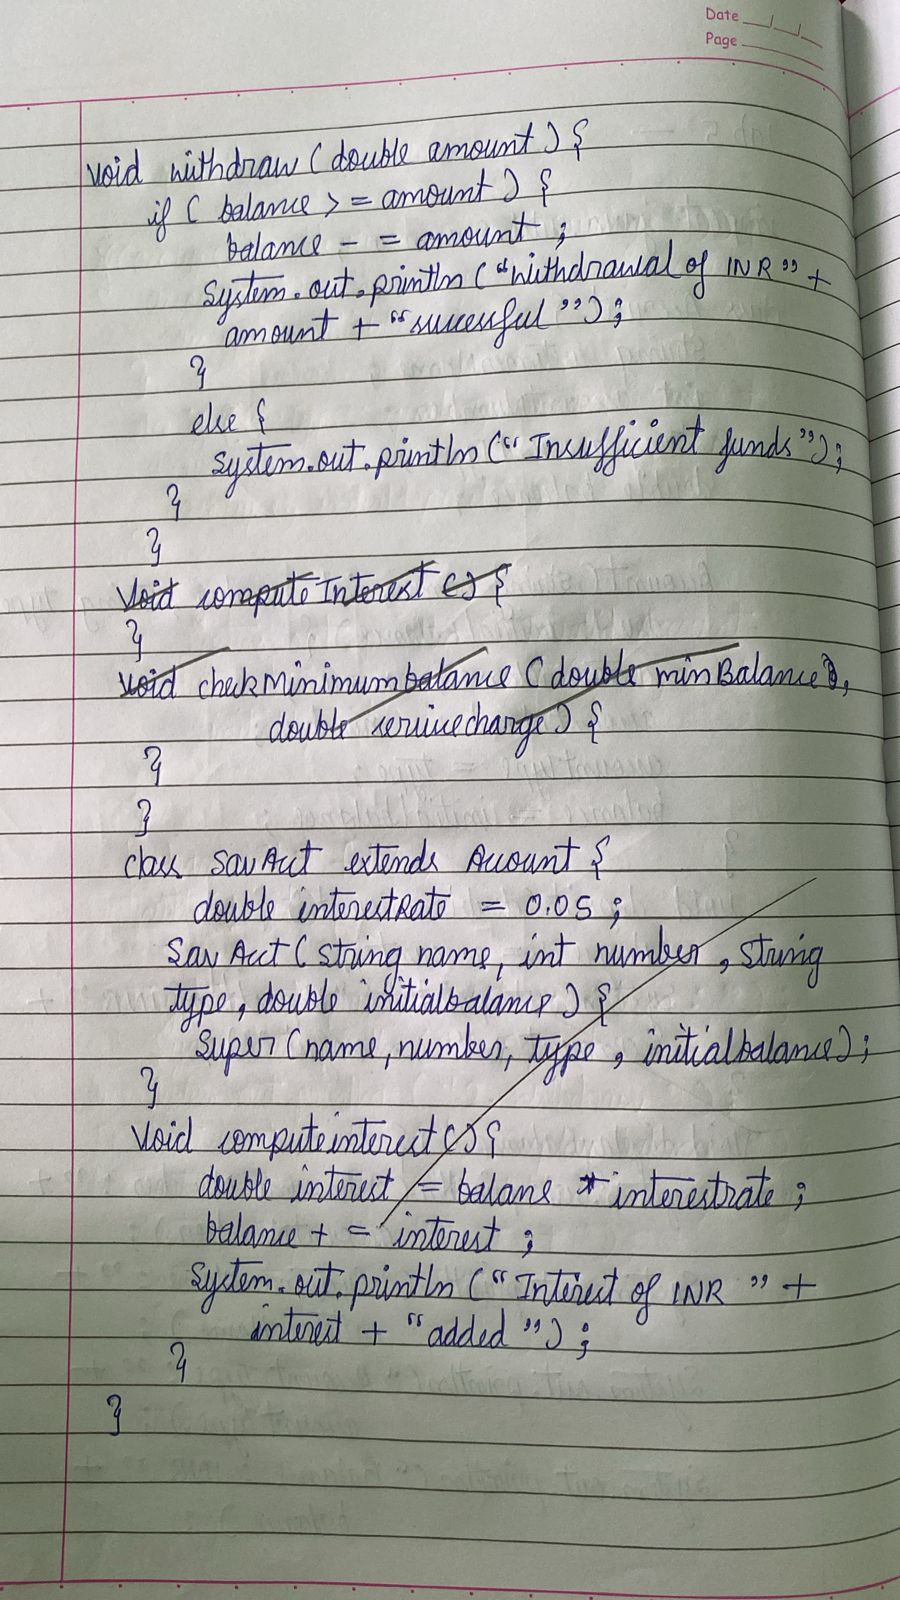 Date
Page
void withdraw (double amount) {
if ( balance > = amount ) {
balance - = amount ;
System.out.println ("withdrawal of INR" +
amount + "sucessful");
}
else {
System.out.println ("Insufficient funds");
}
}
void compute Interest () {
}
void checkminimumbalance (double minBalance,
double servicecharge) {
}
}
class SavAcct extends Account {
double interestRate = 0.05 ;
Sav Acct ( string name, int number , string
type, double initialbalance ) {
super (name, number, type , initialbalance) ;
}
void computeinterest () {
double interest = balane * interestrate ;
balance + = interest ;
System.out.println ("Interest of INR " +
interest + "added") ;
}
}